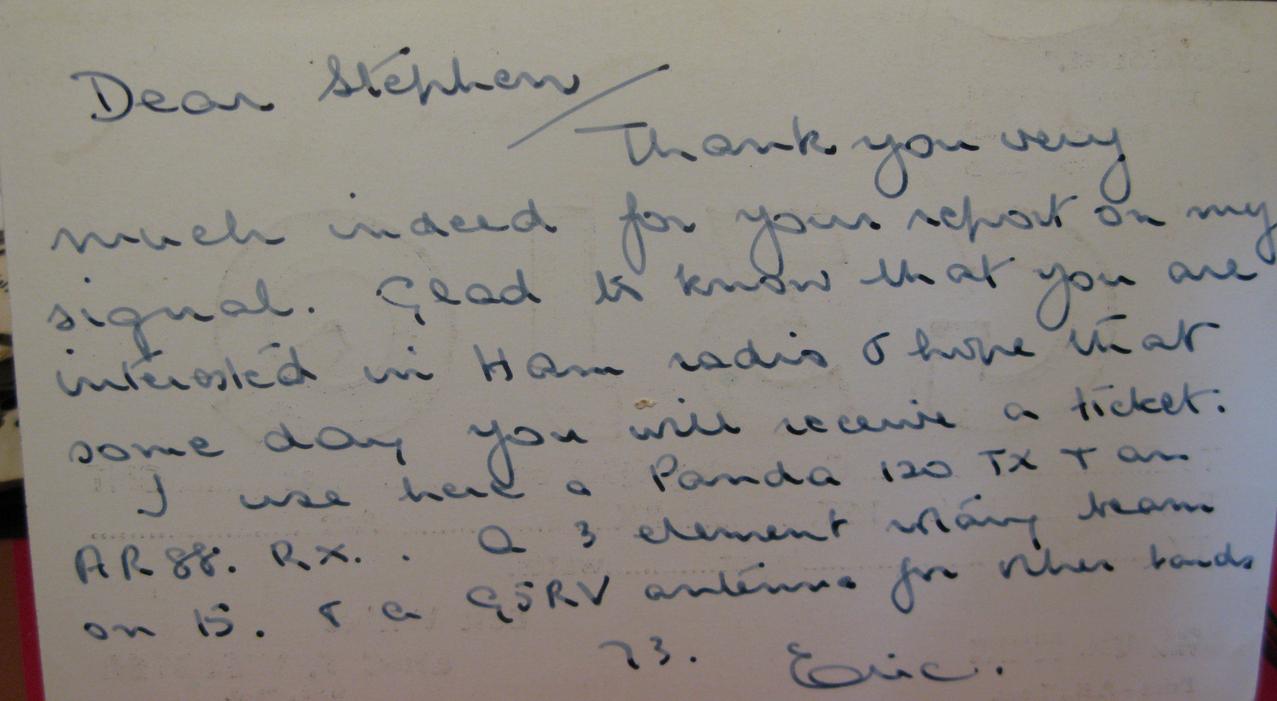 Dear Stephen/
Thank you very
much indeed for your report on my
signal. Glad to know that you are
interested in Ham radio & hope that
some day you will receive a ticket.
I use here a Panda 120 TX + an
AR88. RX.. A 3 element rotary beam
on 15. & a G5RV antenna for other bands
73. Eric.